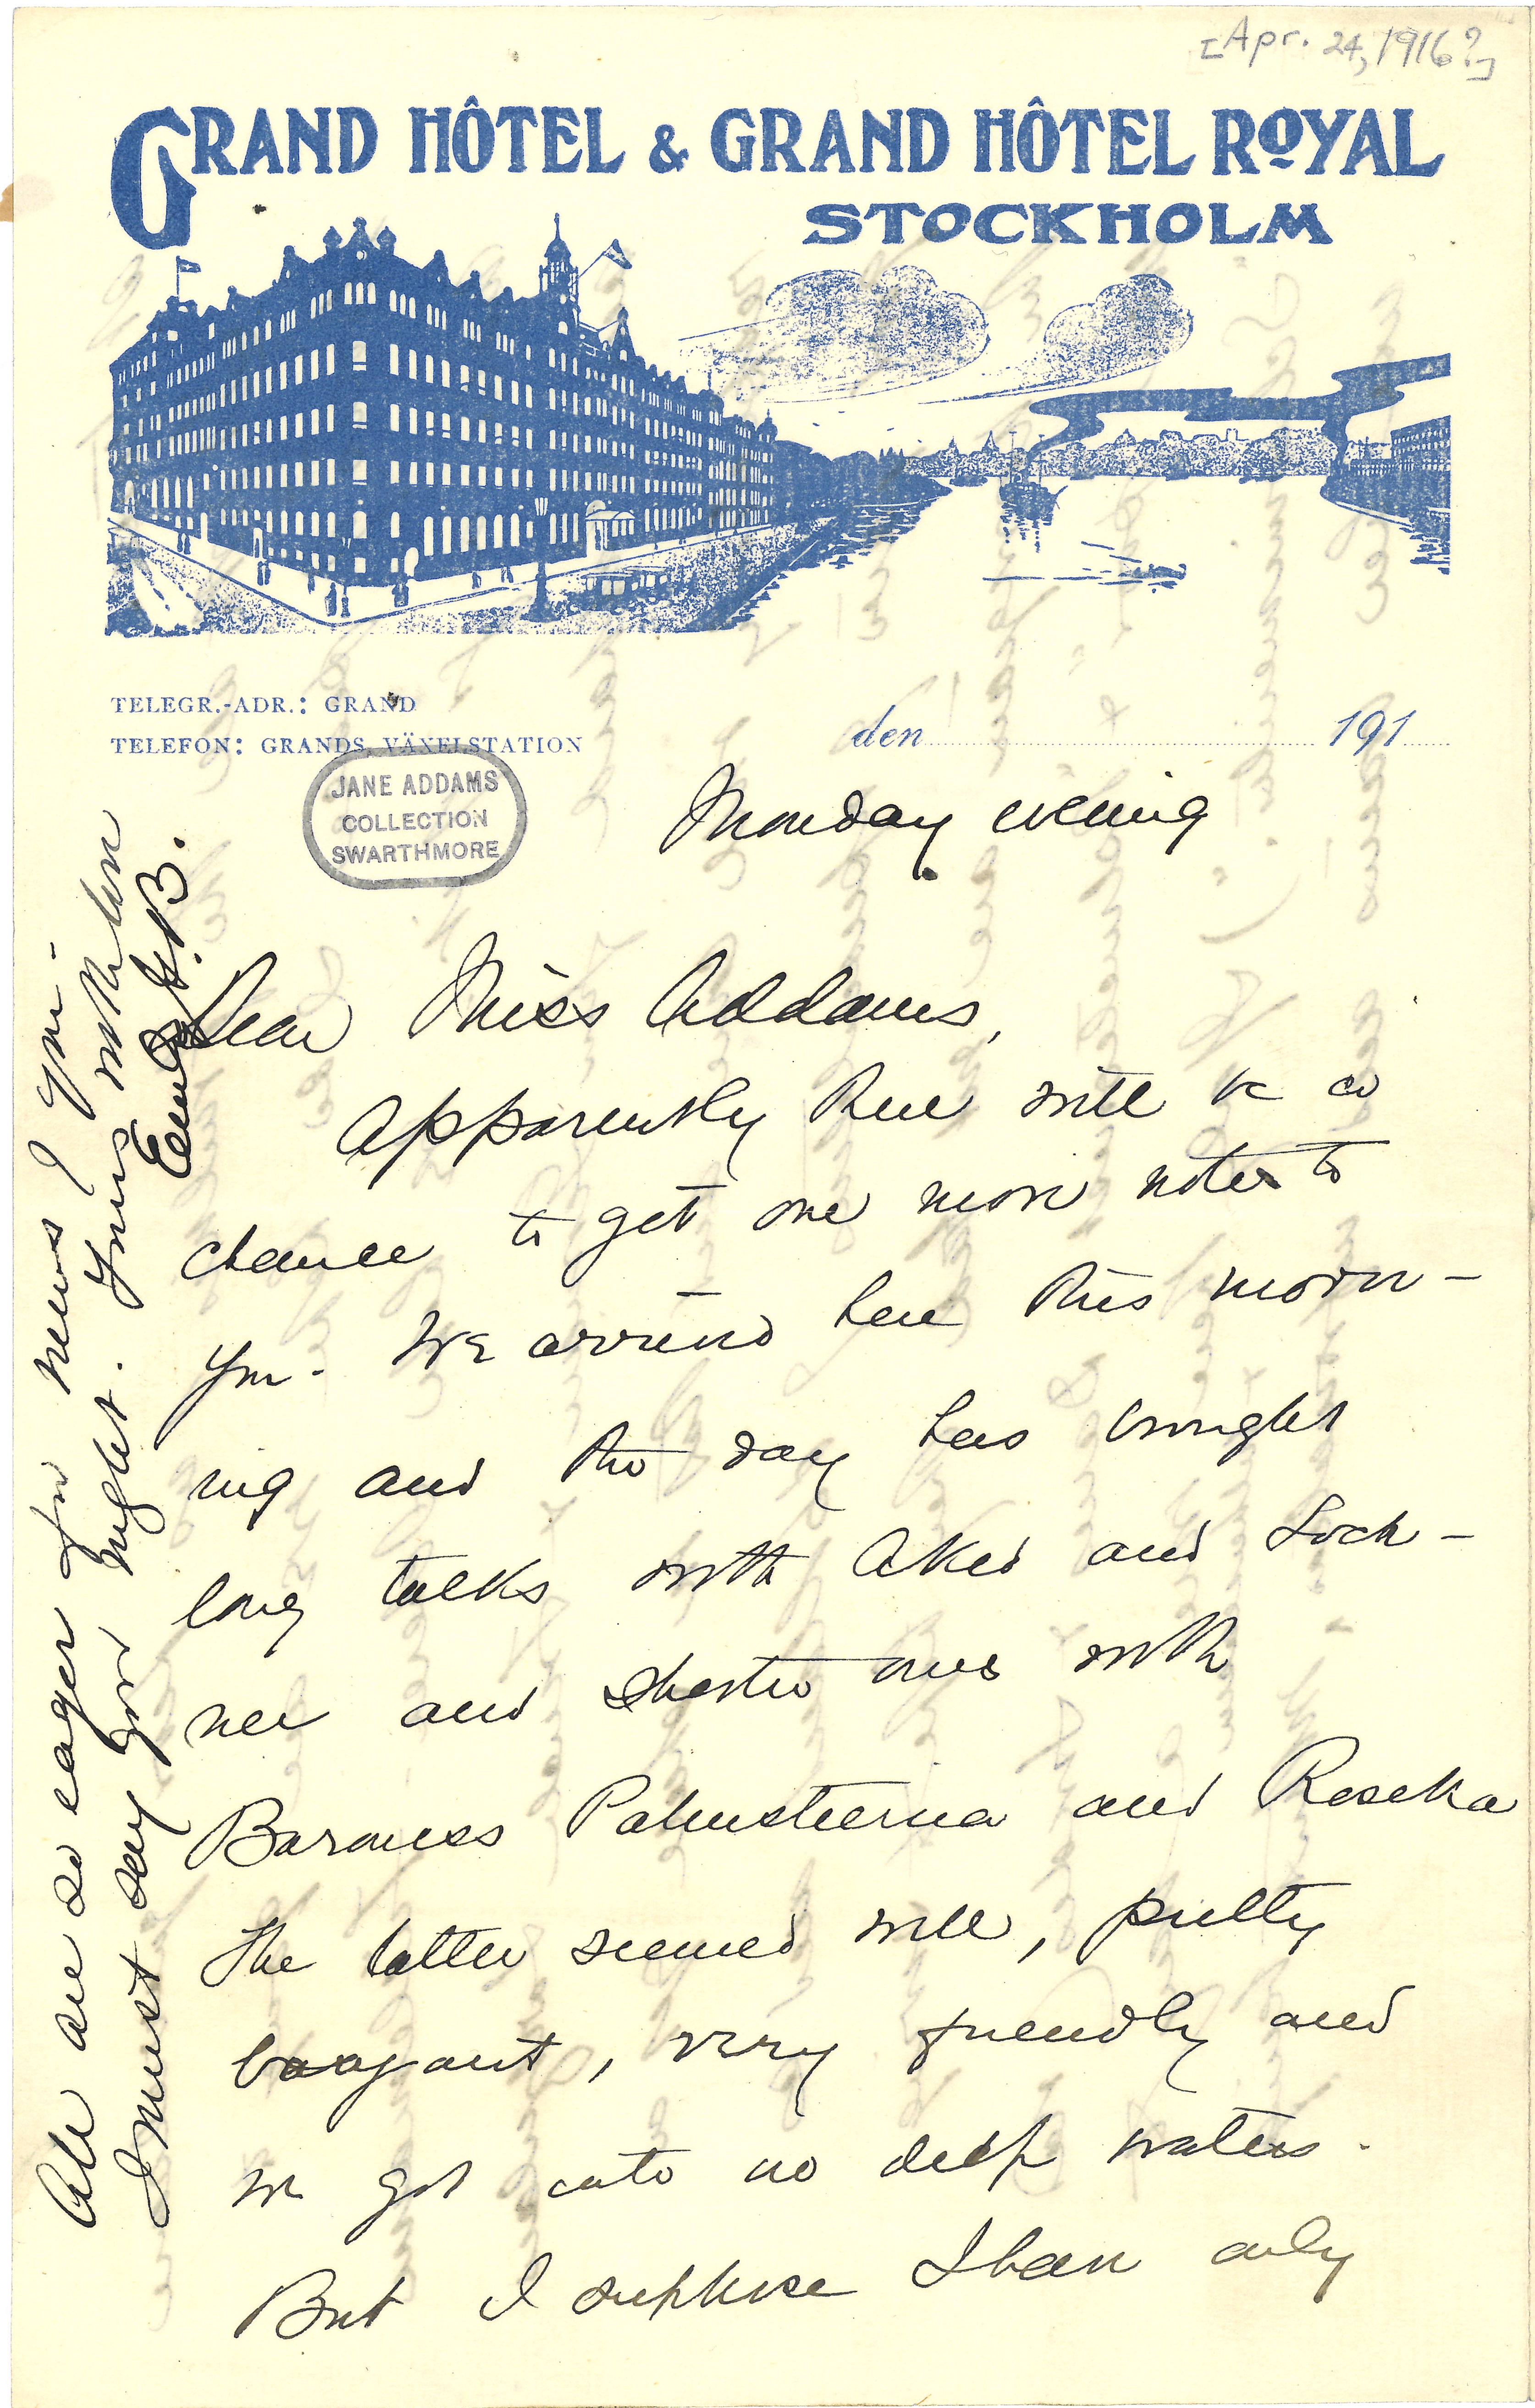 [Apr. 24, 1916?]
GRAND HÔTEL & GRAND HÔTEL ROYAL
STOCKHOLM
TELEGR.-ADR.: GRAND
TELEFON: GRANDS, VÄXELSTATION
den 191
JANE ADDAMS
COLLECTION
SWARTHMORE
Monday evening
Dear Miss Addams,
Apparently there will be a
chance to get one more note to
you. We arrived here this morn-
ing and the day has brought
long talks with Aked and Loch-
ner and shorter ones with
Baroness Palmstierna and Rosika
The latter seemed well, pretty
buoyant, very friendly and
we got into no deep waters.
But I suppose I have only
All are so eager for news of you -
I must say good night. Yours with love
Emily G. B.